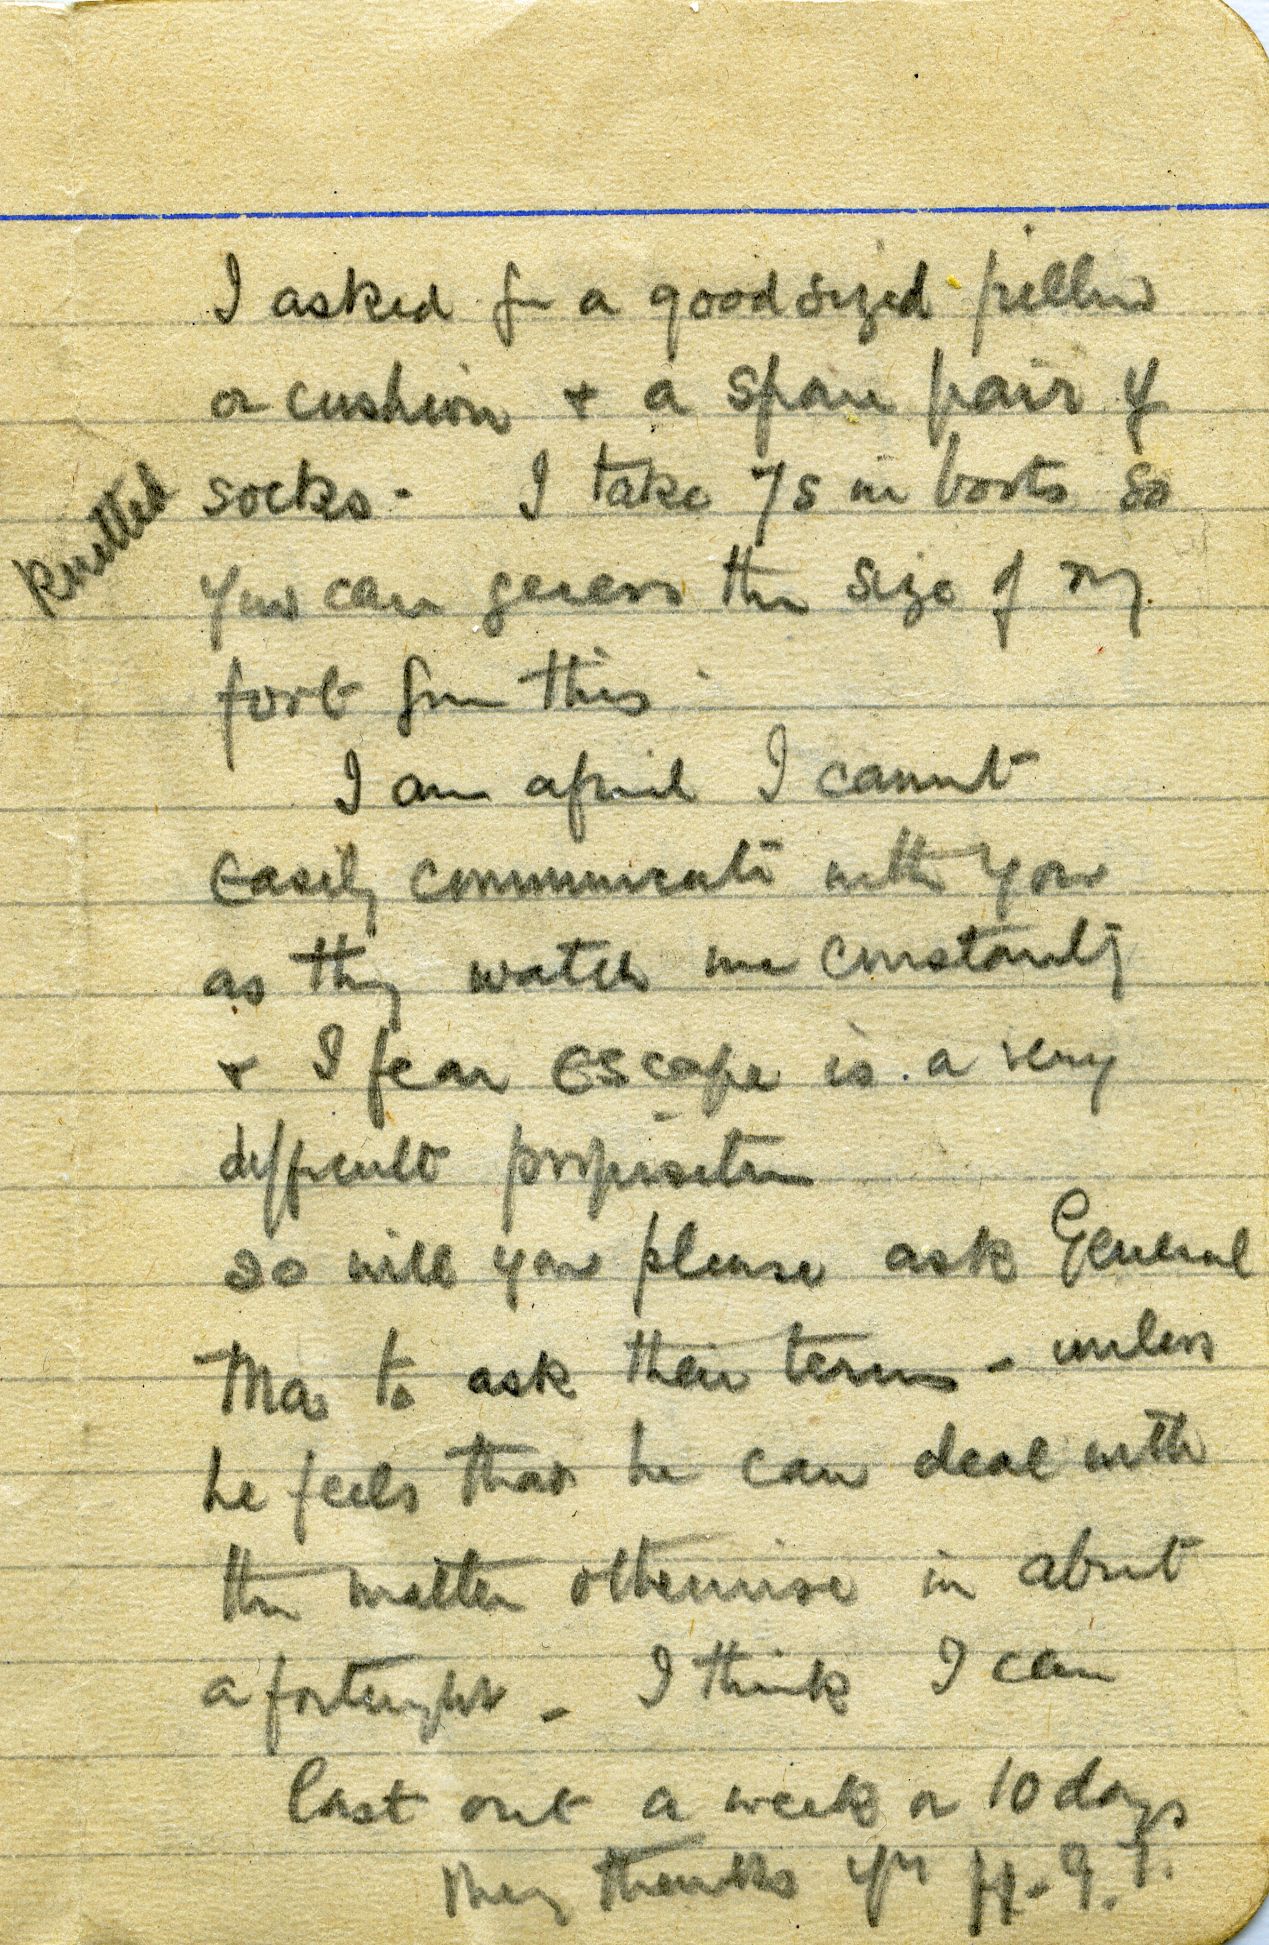 I asked for a good sized pillow
or cushion + a spare pair of
knitted
socks. I take 7s in boots so
you can guess the size of my
foot from this.
I am afraid I cannot
easily communicate with you
as they watch me constantly
+ I fear escape is a very
difficult proposition
so will you please ask General
Ma to ask their terms - unless
he feels that he can deal with
the matter otherwise in about
a fortnight - I think I can
last out a week or 10 days
Many thanks yrs